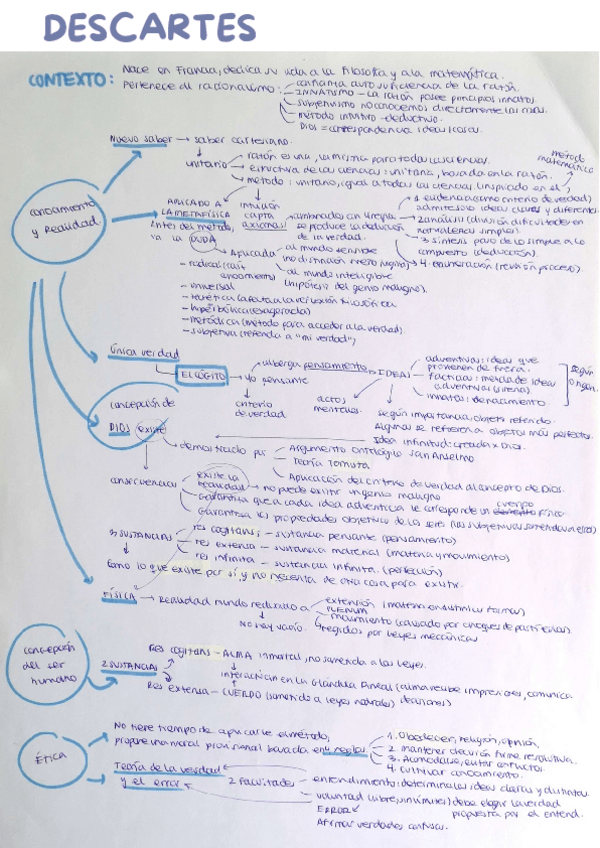 DESCARTES
CONTEXTO: Nace en Francia, dedica su vida a la filosofía y a la matemática.
Pertenece al racionalismo: - confianza autosuficiencia de la razón.
- INNATISMO - La razón posee principios innatos.
- subjetivismo no conocemos directamente las cosas.
- método intuitivo-deductivo.
Dios = correspondencia ideas/cosas.
Nuevo saber → saber cartesiano.
unitario
razón es una, la misma para todas las ciencias.
estructura de las ciencias: unitaria, basada en la razón.
método: unitario, igual a todas las ciencias (inspirado en el)
método matemático
conocimiento y Realidad.
APLICADO A LA METAFÍSICA
Antes del método, va la DUDA
intuición capta axiomas
combinados con sí regla se produce la deducción de la verdad.
1. evidencia (como criterio de verdad)
admite solo ideas claras y diferentes.
2. análisis (división dificultades en naturalezas simples)
3. síntesis paso de lo simple a lo compuesto (deducción).
4. enumeración (revisión proceso).
Aplicada
al mundo sensible
(no distinción sueño/vigilia)
al mundo inteligible
(hipótesis del genio maligno).
- radical (casi conocimiento)
- universal
- teorética (afecta a la reflexión filosófica
- hiperbólica (exagerada)
- metódica (método para acceder a la verdad).
- subjetiva (referida a "mi verdad")
única verdad
EL CÓGITO
alberga pensamiento
yo pensante
criterio de verdad
actos mentales
IDEAS
adventicias: ideas que provienen de fuera.
facticias: mezcla de ideas adventicias (sirena)
innatas: de nacimiento
según origen.
según importancia, objeto referido.
Algunas se refieren a objetos más perfectos.
Idea infinitud: creada x Dios.
concepción de DIOS
existe
demostrado por
Argumento ontológico San Anselmo
Teoría Tomista
Aplicación del criterio de verdad al concepto de Dios.
consecuencias
existe la realidad → no puede existir un genio maligno
Garantiza que a cada idea adventicia le corresponde un cuerpo físico
Garantiza las propiedades objetivas de los seres (las subjetivas son
3 SUSTANCIAS
res cogitans - sustancia pensante (pensamiento)
res extensa - sustancia material (materia y movimiento)
res infinita - sustancia infinita. (perfección)
Como lo que existe por sí y no necesita de otra cosa para existir.
FÍSICA → Realidad mundo reducido a
extensión
PLENUM
movimiento (causado por choques de partículas).
regidos por leyes mecánicas
No hay vacío.
concepción del ser humano
2 SUSTANCIAS
Res cogitans - ALMA inmortal, no sometida a las leyes.
interactúan en la Glándula Pineal (alma recibe impresiones, comunica decisiones)
Res extensa - CUERPO (sometido a leyes naturales)
Ética
No tiene tiempo de aplicarle el método,
propone una moral provisional basada en 4 reglas
1. Obedecer, religión, opinión,
2. mantener decisión firme, resolutiva.
3. Acomodarse, evitar conflictos.
4. cultivar conocimiento.
Teoría de la verdad y el error
2 Facultades
entendimiento: determina las ideas claras y distintas.
voluntad (libre, sin límites) debe elegir la verdad propuesta por el entend.
ERROR
Afirmar verdades confusas.